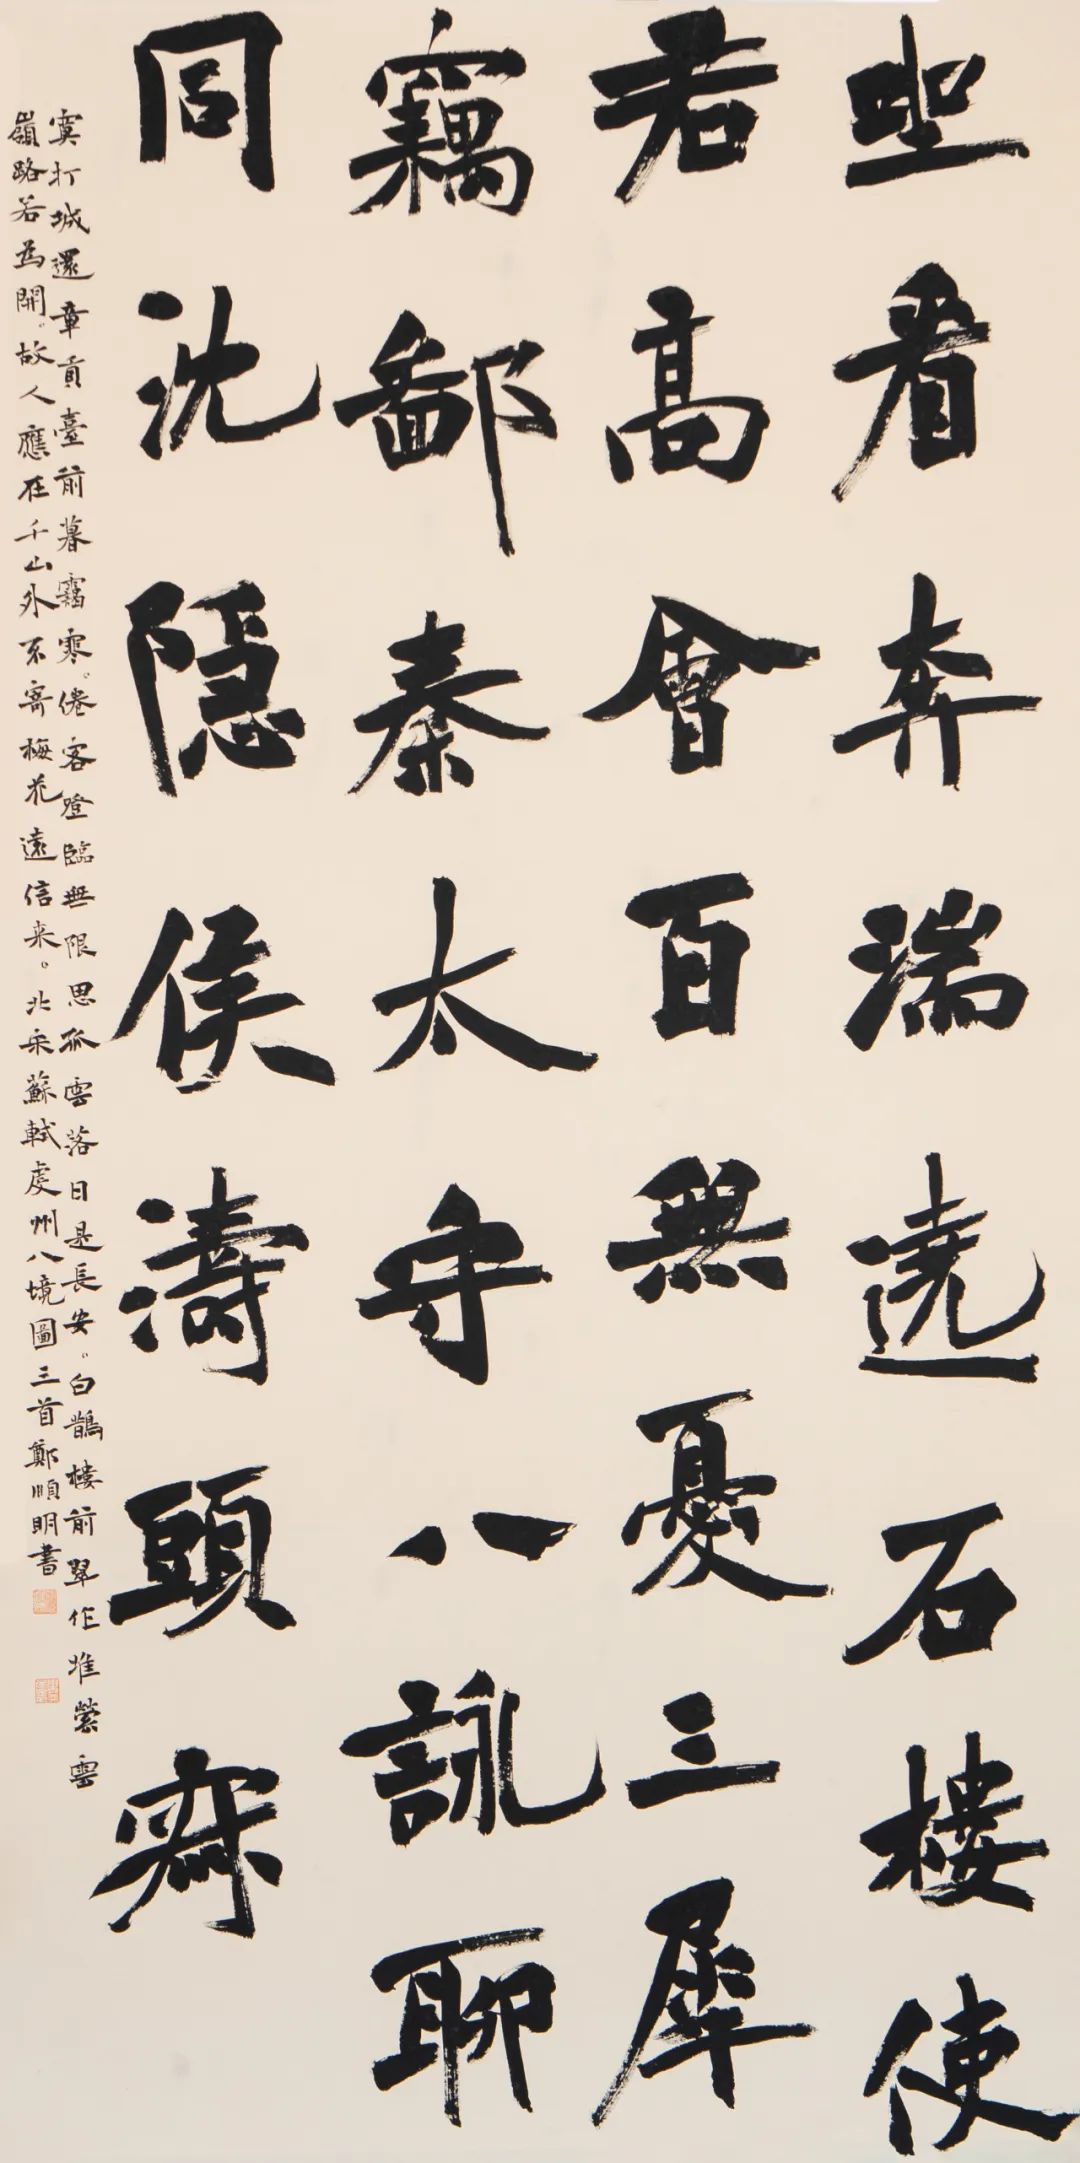 坐看奔湍遶石樓使
君高會百無憂三犀
竊鄙秦太守八詠聊
同沈隱侯濤頭寂
寞打城還章貢臺前暮靄寒。倦客登臨無限思孤雲落日是長安。白鵲樓前翠作堆縈雲
嶺路若為開。故人應在千山外不寄梅花遠信来。北宋蘇軾虔州八境圖三首鄭順明書